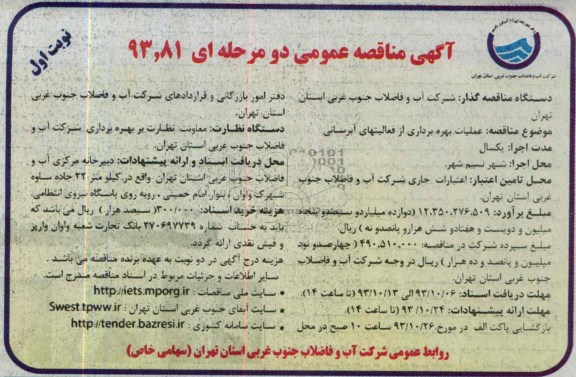 نوبت اول
آگهی مناقصه عمومی دو مرحله ای ۹۳٫۸۱
شرکت آب و فاضلاب جنوب غربی استان تهران
دستگاه مناقصه گذار: شرکت آب و فاضلاب جنوب غربی استان
تهران
موضوع مناقصه: عملیات بهره برداری از فعالیتهای آبرسانی
مدت اجرا: یکسال
محل اجرا: شهر نسیم شهر.
محل تامین اعتبار: اعتبارات جاری شرکت آب و فاضلاب جنوب
غربی استان تهران.
مبلغ برآورد: ۱۲،۳۵۰،۲۷۶،۵۰۹ (دوازده میلیاردو سیصدو پنجاه
میلیون و دویست و هفتادو شش هزارو پانصدو نه) ریال.
مبلغ سپرده شرکت در مناقصه: ۴۹۰،۵۱۰،۰۰۰ (چهارصدو نود
میلیون و پانصد و ده هزار) ریال در وجه شرکت آب و فاضلاب
جنوب غربی استان تهران.
مهلت دریافت اسناد: ۹۳/۱۰/۰۶ الی ۹۳/۱۰/۱۳ (تا ساعت ۱۴).
مهلت ارائه پیشنهادات: ۹۳/۱۰/۲۴ (تا ساعت ۱۴).
بازگشایی پاکت الف در مورخ ۹۳/۱۰/۲۶ ساعت ۱۰ صبح در محل
دفتر امور بازرگانی و قراردادهای شرکت آب و فاضلاب جنوب غربی
استان تهران.
دستگاه نظارت: معاونت نظارت بر بهره برداری شرکت آب و
فاضلاب جنوب غربی استان تهران.
محل دریافت اسناد و ارائه پیشنهادات: دبیرخانه مرکزی آب و
فاضلاب جنوب غربی استان تهران واقع در کیلو متر ۲۲ جاده ساوه
شهرک واوان، بلوار امام خمینی، روبه روی پاسگاه نیروی انتظامی.
هزینه خرید اسناد: ۳۰۰/۰۰۰ (سیصد هزار) ریال می باشد که
باید به حساب شماره ۳۷۰۶۹۷۷۳۹ بانک تجارت شعبه واوان واریز
و فیش نقدی ارائه گردد.
هزینه درج آگهی در دو نوبت به عهده برنده مناقصه می باشد.
سایر اطلاعات و جزئیات مربوط در اسناد مناقصه مندرج است.
• سایت ملی مناقصات: http://iets.mporg.ir
• سایت آبفای جنوب غربی استان تهران: Swest.tpww.ir
• سایت سامانه کشوری: http://tender.bazresi.ir
روابط عمومی شرکت آب و فاضلاب جنوب غربی استان تهران (سهامی خاص)